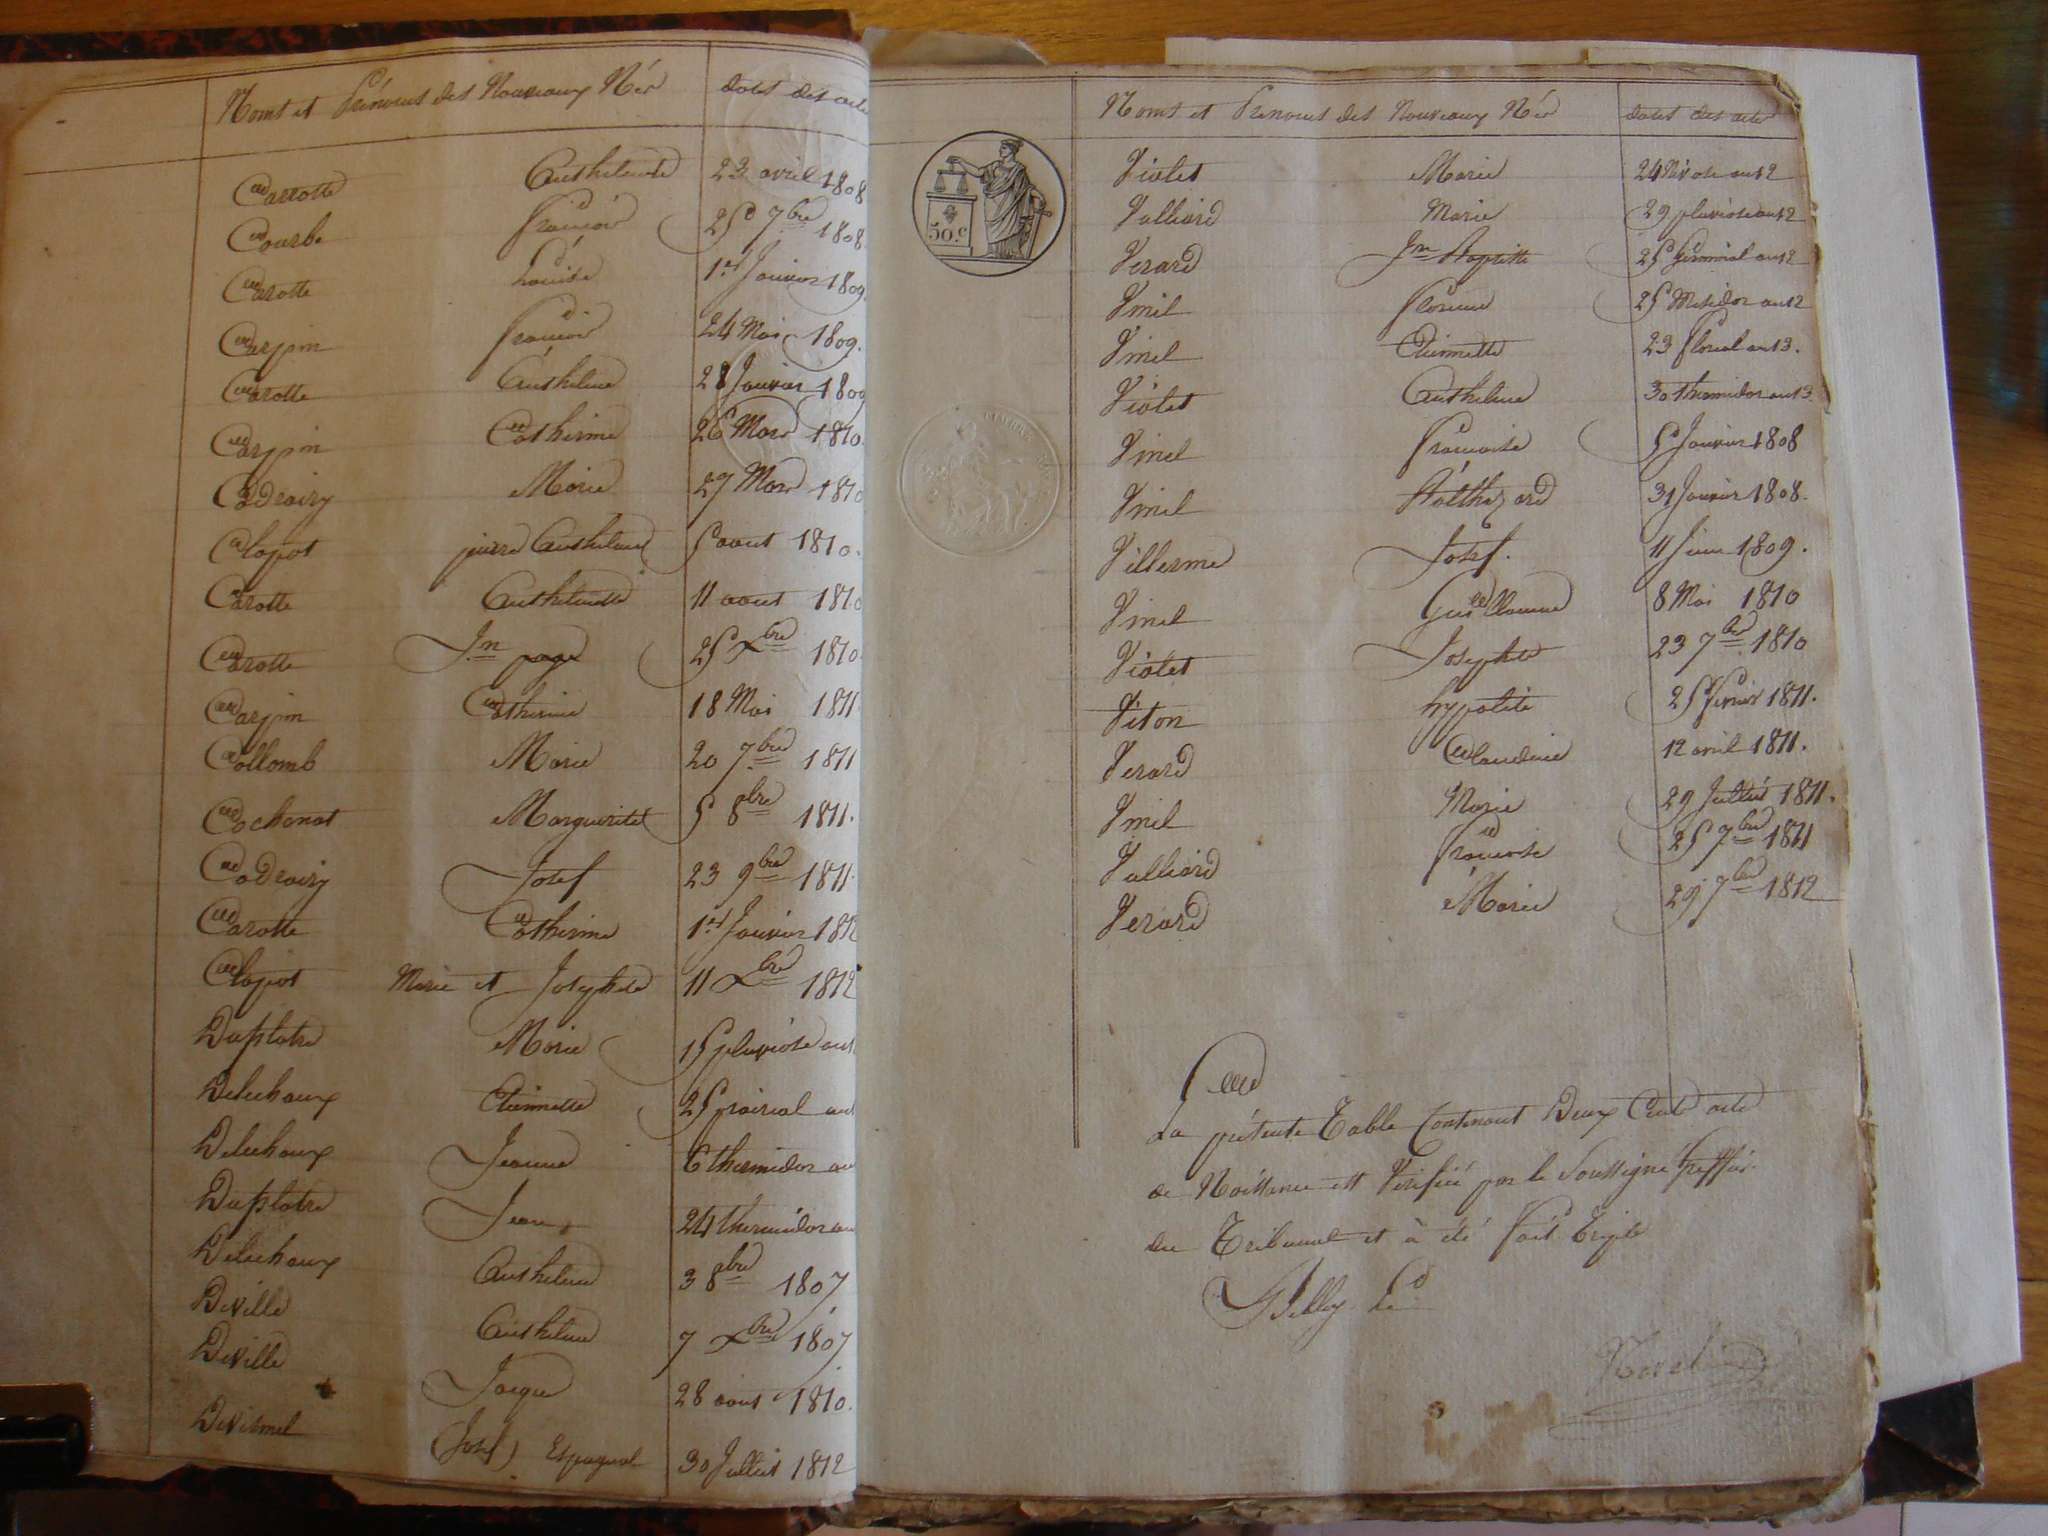 Noms et Prénoms des Nouveaux Nés dates des acte
Carrotte Anthelmette 23 avril 1808
Courbe François 25 7bre 1808
Carotte Louise 1er Janvier 1809
Carpin François 24 Mai 1809.
Carotte Anthelme 28 Janvier 1809
Carpin Catherine 26 Mars 1810.
Marie 29 Mars 1810
Clapot pierre Anthelme 5 aout 1810.
Carotte Anthelmette 11 aout 1810
Carotte Jn 25 Xbre 1810.
Carpin Catherine 18 Mai 1811
Collomb Marie 20 7bre 1811
Cochonat Marguerite 5 8bre 1811.
Josef 23 9bre 1811.
Carotte Catherine 1er Janvier 1812
Clapot Marie et Josephte 11 Xbre 1812
Duplatre Marie 15 pluviose an
Deléchaux Etiennette 25 prairial an
Deléchaux Jeanne 6 thermidor an
Duplatre Jean 24 thermidor an
Deléchaux Anthelme 3 8bre 1807
Deville Anthelme 7 Xbre 1807
Deville Jacque 28 aout 1810.
Josef Espagnol 30 Juillet 1812
Noms et Prénoms des Nouveaux Nés dates des actes
50.c
Violet Marie 24 Nivose an 12
Valliard Marie 29 pluviose an 12
Verard Jn Baptiste 25 Germinal an 12
Vinel 25 Mesidor an 12
Vinel Etiennette 23 floreal an 13.
Violet Anthelme 30 thermidor an 13
Vinel Francoise 5 Janvier 1808
Vinel Balthazard 31 Janvier 1808.
Villerme Josef. 11 Juin 1809.
Vinel Guillaume 8 Mai 1810
Violet Josephte 23 7bre 1810
Viton hypolite 25 fevrier 1811.
Verard Claudine 12 avril 1811.
Vinel Marie 29 Juillet 1811.
Valliard Francoise 25 7bre 1811
Verard Marie 29 7bre 1812
La présente Table Contenant Deux Cents actes
de Naissance est Vérifiée par le Soussigné Greffier
du Tribunal et à été fait Triple
Billy